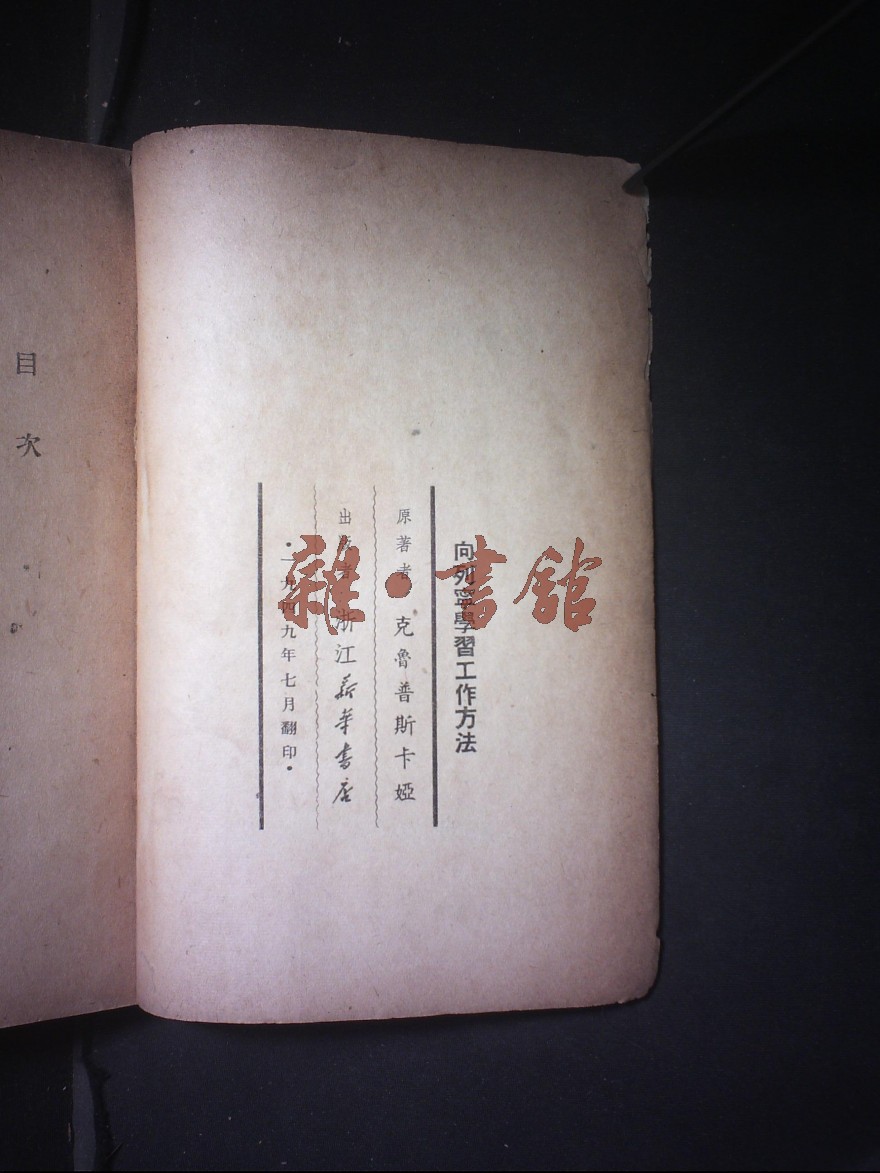 向列寧學習工作方法
原著者 克魯普斯卡婭
出版者 浙江新華書店
•一九四九年七月翻印•
目次
雜•書館